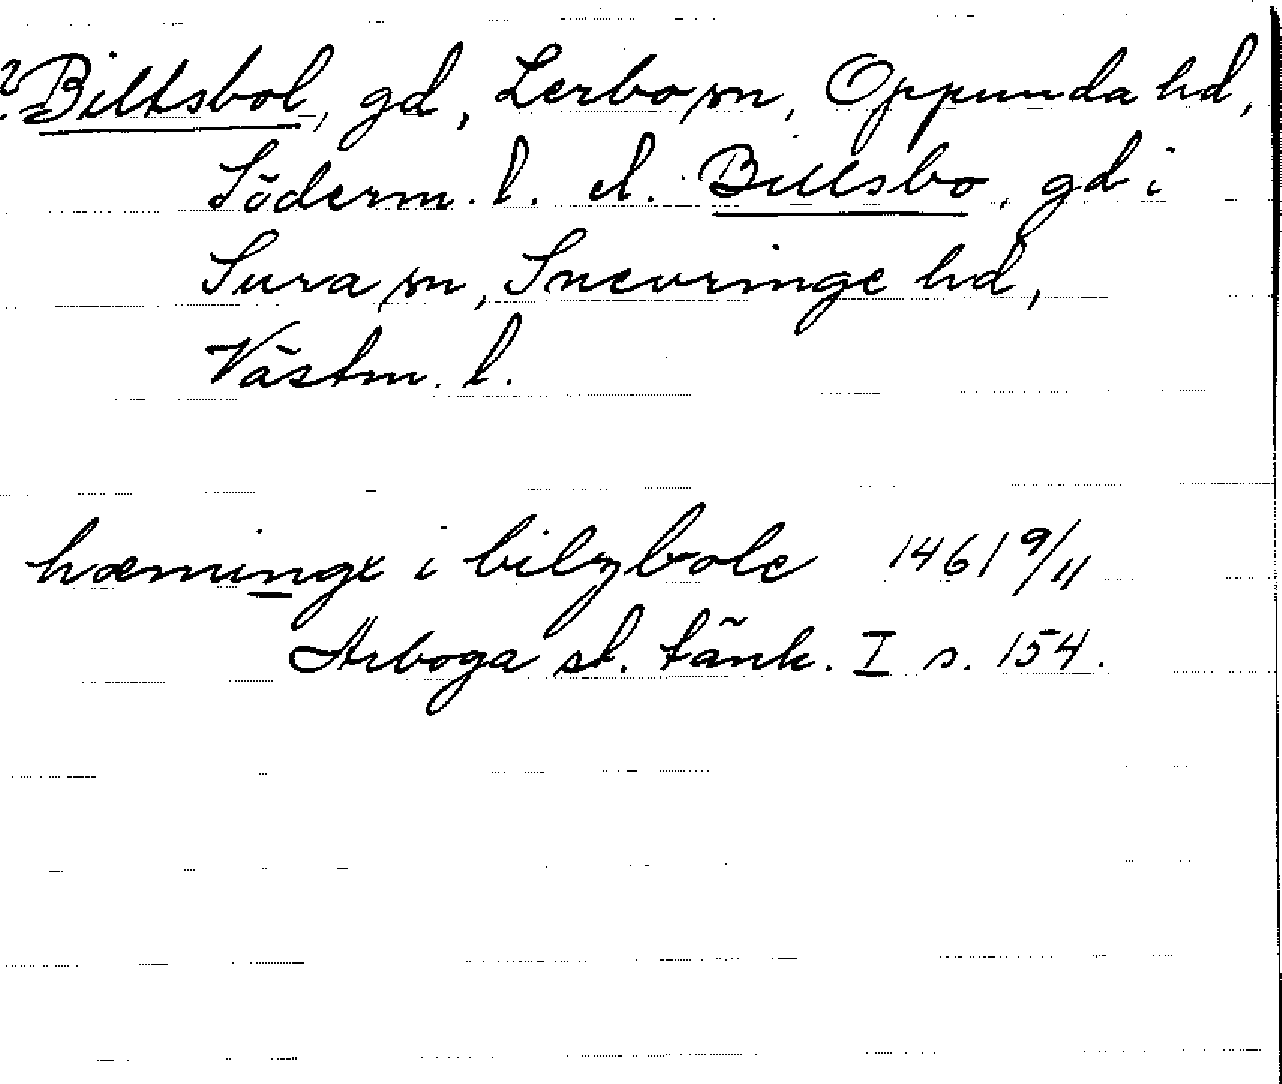 ? Biltsbol, gd, Lerbo sn, Oppunda hd,
Söderm. l. el. Billsbo, gd i
Sura sn, Snevringe hd,
Västm. l.
hæminge i bilzbole 1461 9/11
Arboga st. tänk. I s. 154.